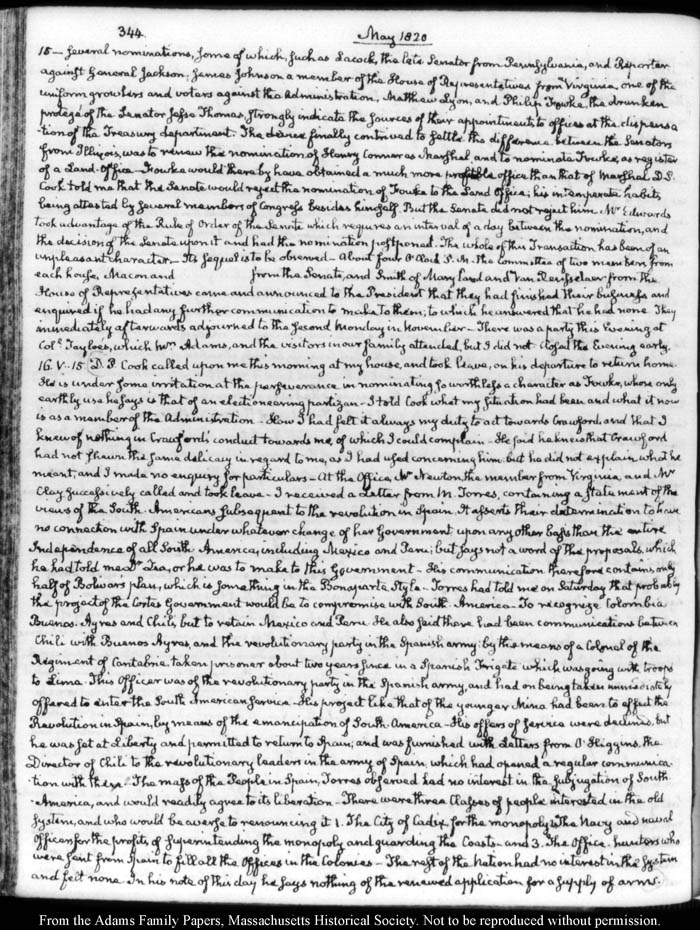 344.
May 1820
15 — Several nominations, some of which, such as Lacock, the late Senator from Pennsylvania, and Reporter
against General Jackson; James Johnson a member of the House of Representatives from Virginia, one of the
uniform growlers and voters against the Administration, Matthew Lyon, and Philip Fouke, the drunken
protegé of the Senator Jesse Thomas, strongly indicate the sources of their appointments to offices at the dispensa-
-tion of the Treasury department. The device finally contrived to settle the difference between the Senators
from Illinois, was to renew the nomination of Henry Conner as Marshal, and to nominate Fouke, as register
of a Land-Office. Fouke would thereby have obtained a much more profitable office than that of Marshal. D. P.
Cook told me that the Senate would reject the nomination of Fouke to the Land Office; his intemperate habits
being attested by several members of Congress besides himself. But the Senate did not reject him. Mr Edwards
took advantage of the Rule of Order of the Senate which requires an interval of a day between the nomination, and
the decision of the Senate upon it and had the nomination postponed. The whole of this Transaction has been of an
unpleasant character — Its sequel is to be observed — About four O'Clock P. M. the Committee of two members from
each house, Macon and from the Senate, and Smith of Maryland and Van Rensselaer from the
House of Representatives came and announced to the President that they had finished their business and
enquired if he had any further communication to make to them; to which he answered that he had none. They
immediately afterwards adjourned to the second Monday in November — There was a party this Evening at
Coll Tayloe's, which Mrs Adams, and the visitors in our family attended, but I did not. Closed the Evening early.
16. V. 15. D. P. Cook called upon me this morning at my house, and took leave, on his departure to return home.
He is under some irritation at the perseverance in nominating so worthless a character as Fouke, whose only
earthly use he says is that of an electioneering partizan. I told Cook what my situation had been and what it now
is as a member of the Administration — How I had felt it always my duty to act towards Crawford, and that I
knew of nothing in Crawford's conduct towards me, of which I could complain — He said he knew that Crawford
had not shewn the same delicacy in regard to me, as I had used concerning him. but he did not explain what he
meant, and I made no enquiry for particulars — At the Office, Mr Newton, the member from Virginia, and Mr
Clay successively called and took leave. I received a Letter from M. Torres, containing a statement of the
views of the South-Americans subsequent to the revolution in Spain. It asserts their determination to have
no connection with Spain under whatever change of her Government upon any other basis than the entire
Independence of all South America, including Mexico and Peru; but says not a word of the proposals, which
he had told me Zea, or he was to make to this Government — His communication therefore contains only
half of Bolivar's plan, which is something in the Bonaparte Style. Torres had told me on Saturday that probably
the project of the Cortes Government would be to compromise with South America — To recognize Colombia
Buenos-Ayres and Chili, but to retain Mexico and Peru. He also said there had been communications between
Chili with Buenos Ayres, and the revolutionary party in the Spanish army: by the means of a Colonel of the
Regiment of Cantabria taken prisoner about two years since in a Spanish frigate which was going with troops
to Lima. This Officer was of the revolutionary party in the Spanish army, and had on being taken immediately
offered to enter the South American service — His project like that of the younger Mina had been to effect the
Revolution in Spain, by means of the emancipation of South-America — His offers of service were declined, but
he was set at Liberty and permitted to return to Spain; and was furnished with Letters from O'Higgins, the
Director of Chili to the revolutionary leaders in the army of Spain, which had opened a regular communica-
-tion with them. The mass of the People in Spain, Torres observed had no interest in the subjugation of South
-America, and would readily agree to its liberation — There were three Classes of people interested in the old
System, and who would be averse to renouncing it 1. The City of Cadiz, for the monopoly. 2. The Navy and naval
officers for the profits of superintending the monopoly and guarding the Coasts — and 3. The Office-hunters who
were sent from Spain to fill all the Offices in the Colonies — The rest of the Nation had no interest in the System
and felt none. In his note of this day he says nothing of the renewed application for a supply of arms.
From the Adams Family Papers, Massachusetts Historical Society. Not to be reproduced without permission.